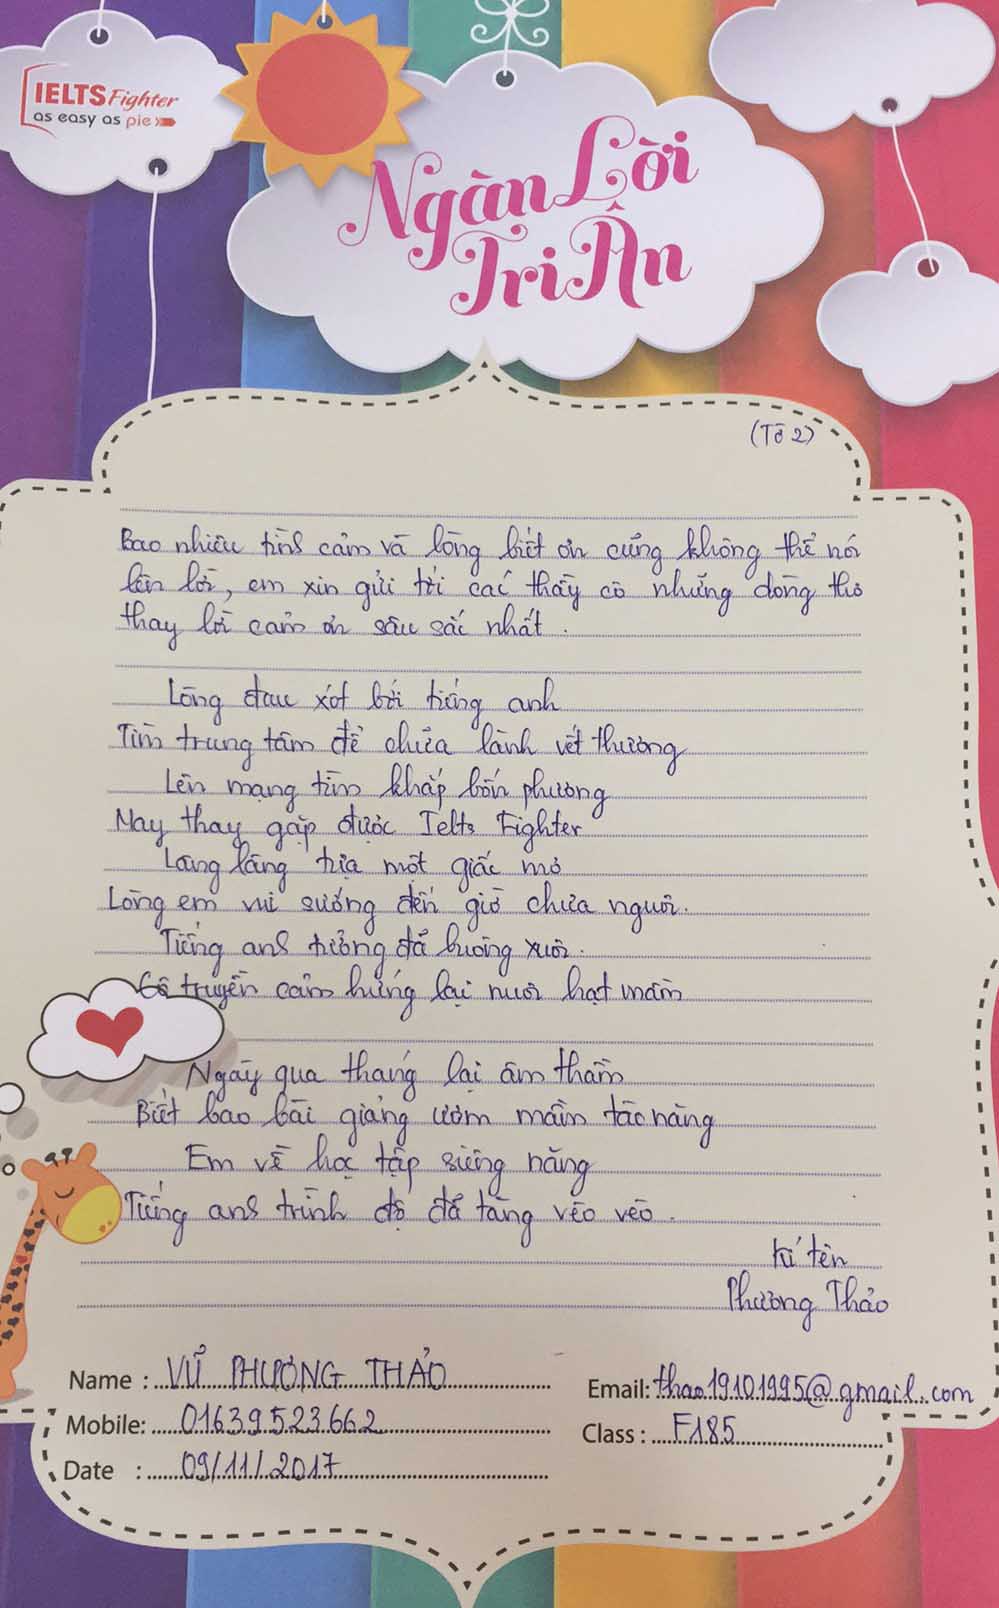 IELTS Fighter
as easy as pie
Ngàn Lời
Tri Ân
(Tờ 2)
Bao nhiêu tình cảm và lòng biết ơn cũng không thể nói
lên lời, em xin gửi tới các thầy cô những dòng thơ
thay lời cảm ơn sâu sắc nhất.
Lòng đau xót bởi tiếng anh
Tìm trung tâm để chữa lành vết thương
Lên mạng tìm khắp bốn phương
May thay gặp được Ielts Fighter
Lâng lâng tựa một giấc mơ
Lòng em vui sướng đến giờ chưa nguôi.
Tiếng anh tưởng đã buông xuôi.
Cô truyền cảm hứng lại nuôi hạt mầm
Ngày qua tháng lại âm thầm
Biết bao bài giảng ươm mầm tài năng
Em về học tập siêng năng
Tiếng anh trình độ đã tăng vèo vèo.
Kí tên
Phương Thảo
Name : VŨ PHƯƠNG THẢO
Email: thao19101995@gmail.com
Mobile: 01639523662
Class : F185
Date : 09/11/2017